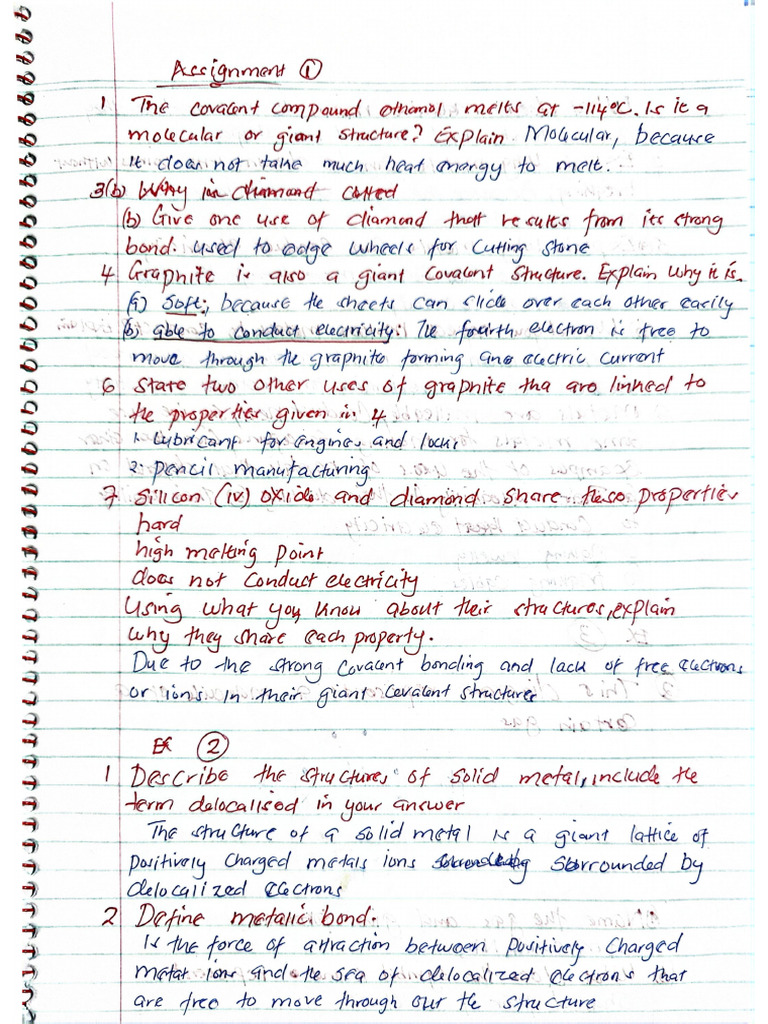 Assignment ①
1 The covalent compound ethanol melts at -114°C. Is it a
molecular or giant structure? Explain. Molecular, because
it does not take much heat energy to melt.
3(b) Why is diamond called
(b) Give one use of diamond that results from its strong
bond. used to edge wheels for cutting stone
4 Graphite is also a giant Covalent structure. Explain why it is.
(a) Soft; because the sheets can slide over each other easily
(b) able to conduct electricity: The fourth electron is free to
move through the graphite forming ane electric current
6 State two other uses of graphite tha are linked to
the properties given in 4
1. Lubricant for engines and locks
2. pencil manufacturing
7 Silicon (iv) oxide and diamond share these properties
hard
high melting point
does not conduct electricity
Using what you know about their structures, explain
why they share each property.
Due to the strong covalent bonding and lack of free electrons
or ions in their giant covalent structures
Ex ②
1 Describe the structures of solid metal, include the
term delocalised in your answer
The structure of a solid metal is a giant lattice of
positively charged metals ions sorrounded by
delocalized electrons
2 Define metalic bond.
Is the force of attraction between positively charged
metal ions and the sea of delocalized electrons that
are free to move through out the structure